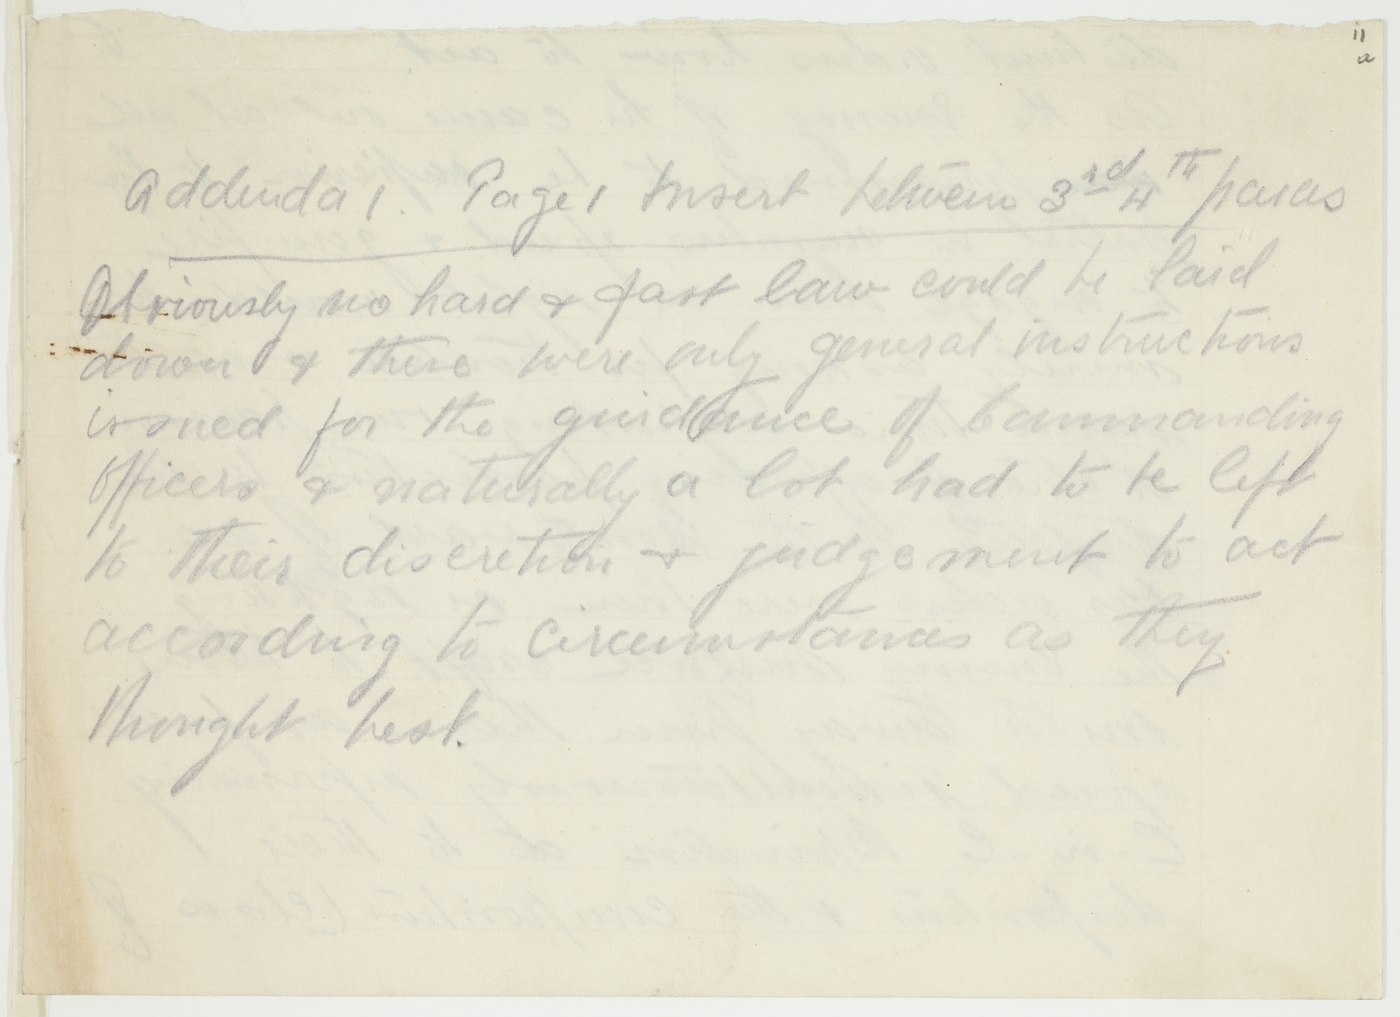 11
a
Addenda 1. Page 1 Insert between 3rd 4th paras
Obviously no hard & fast law could be laid
down & these were only general instructions
issued for the guidance of Commanding
Officers & naturally a lot had to be left
to their discretion & judgement to act
according to circumstances as they
thought best.